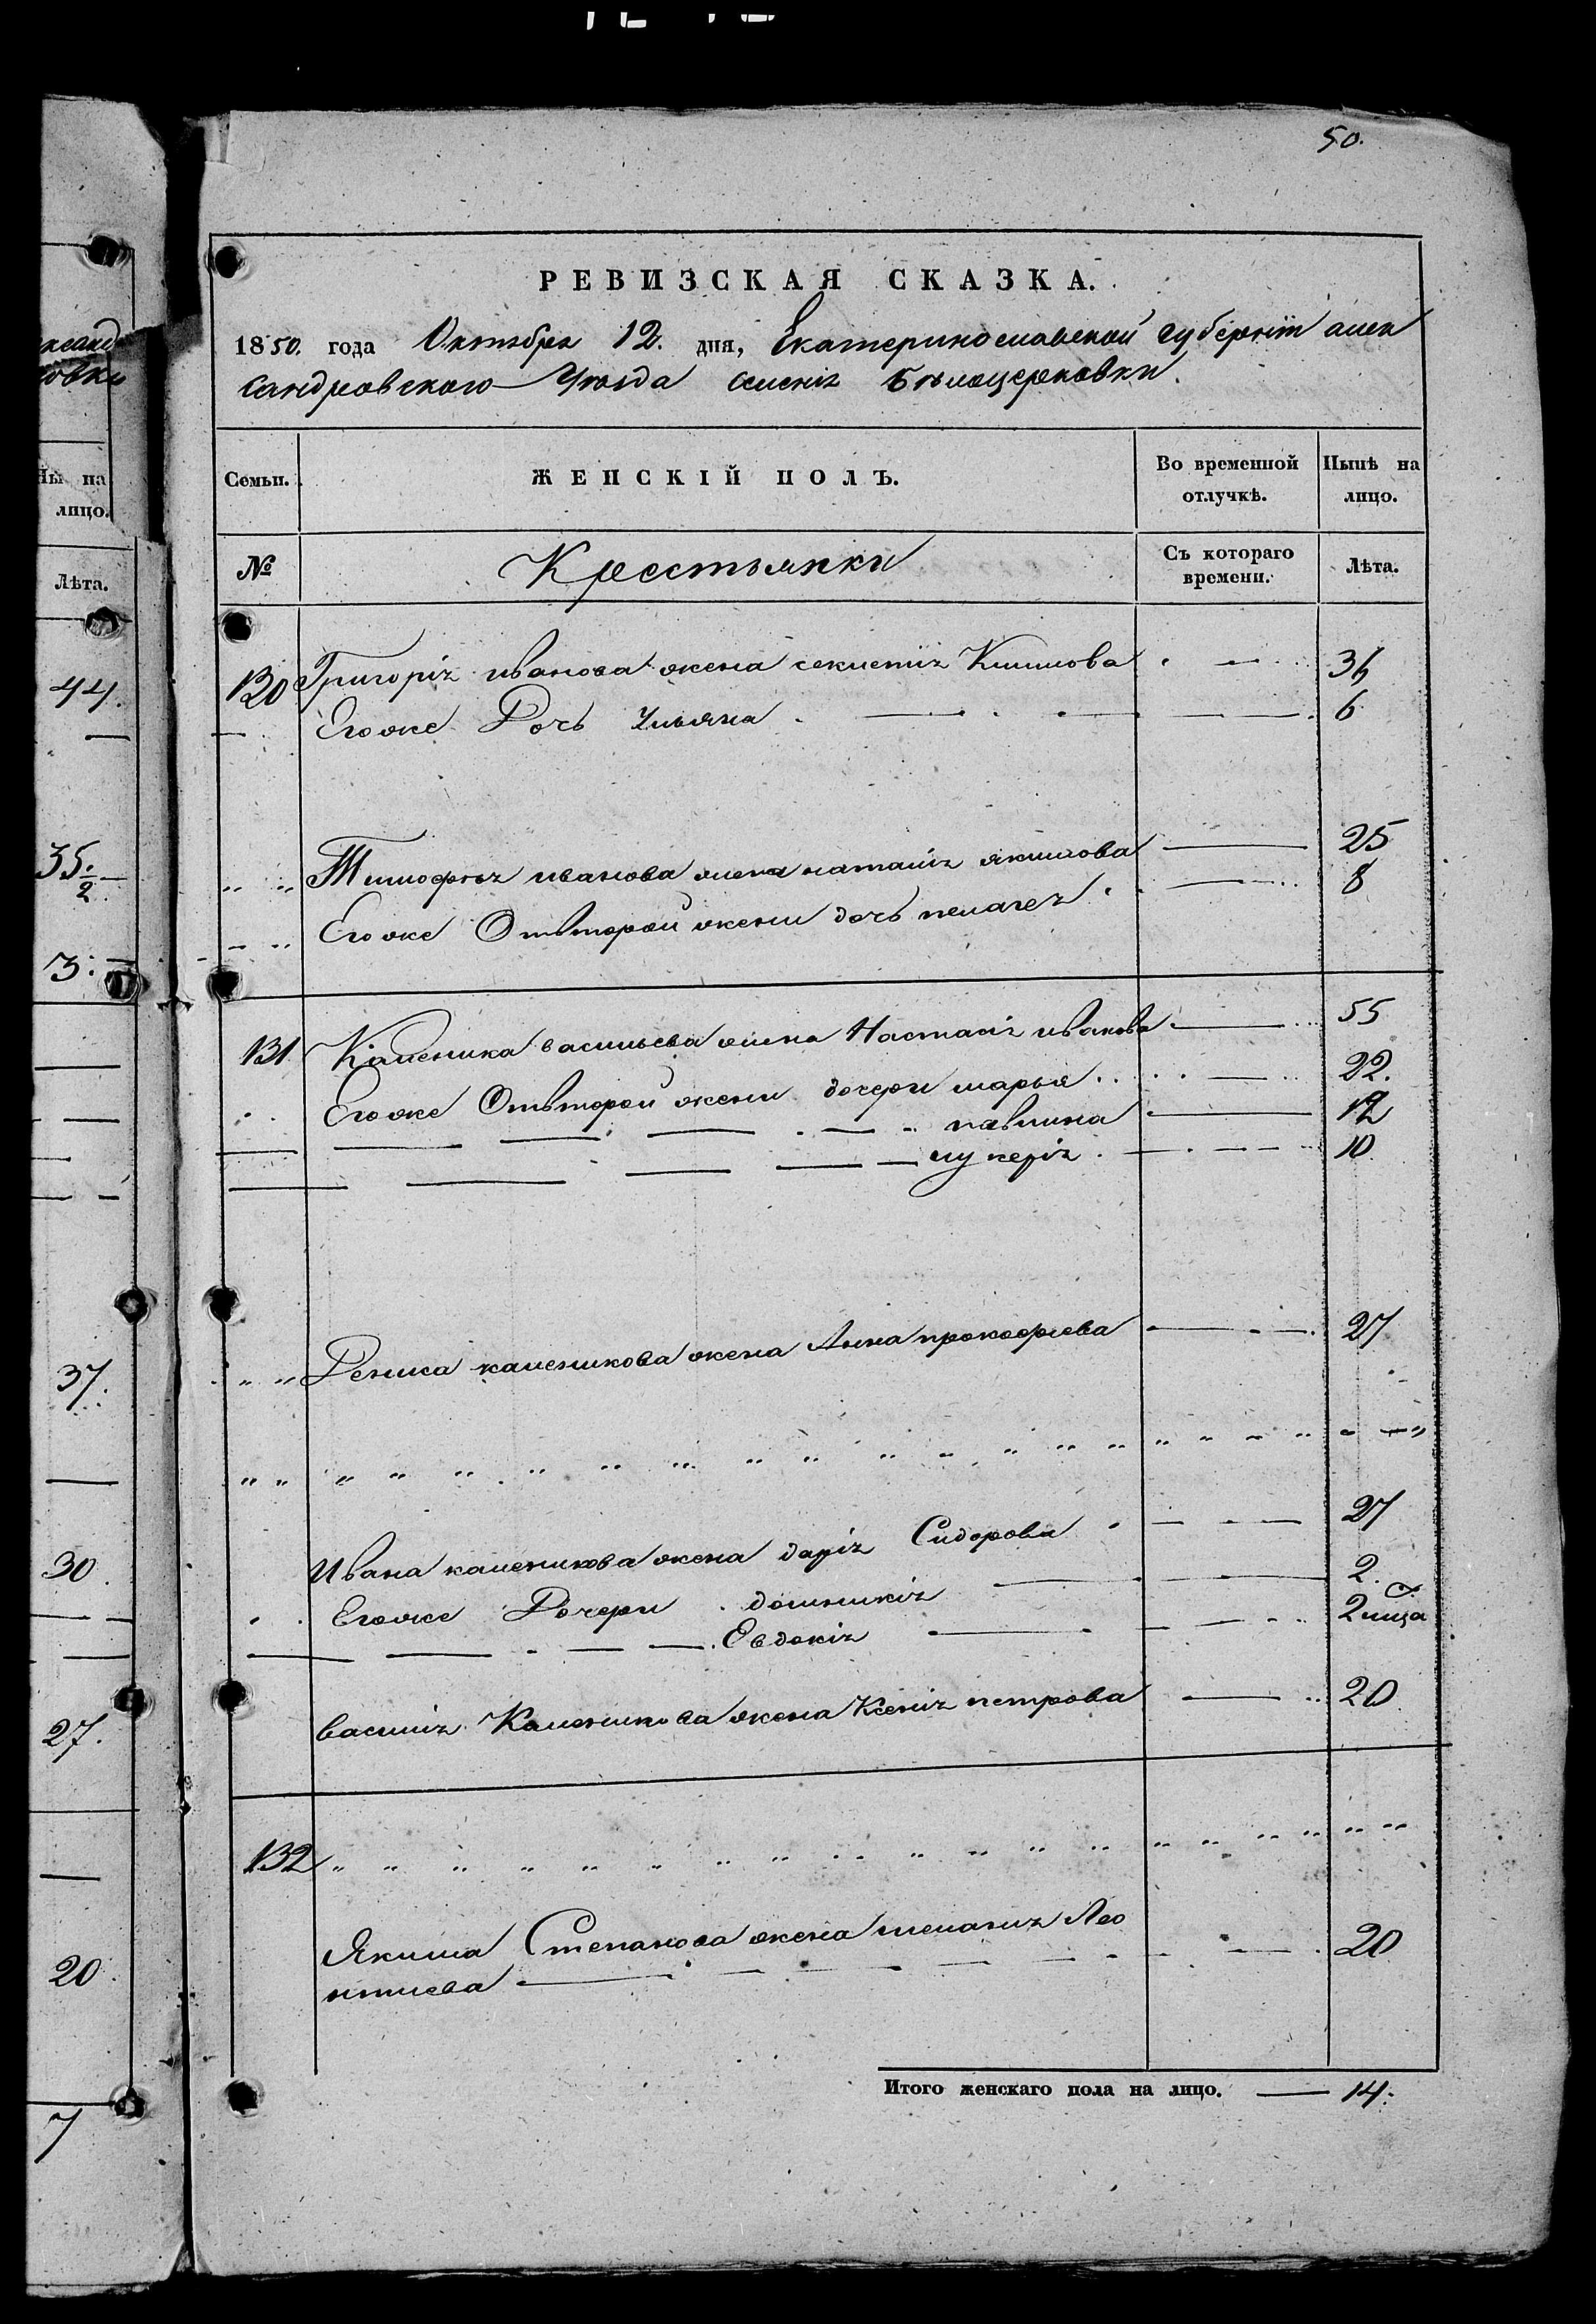 50.
РЕВИЗСКАЯ СКАЗКА.
1850. года Октября 12. дня, Екатеринославской губернïи алек
сандровского Уезда селенія Белоцерковки.
Семьи.
ЖЕНСКІЙ ПОЛЪ.
Во временной отлучкѣ.
Нынѣ на лицо.
№
Крестьянки
Съ котораго времени.
Лѣта.
130 Григорія иванова жена секлетия Климова 36
Егоже Дочь Ульяна 6
Тимофея иванова жена наталія якимова 25
Егоже Отвторой жени дочь пелагея 8
131 Каленика васильева жена Настасія иванова 55
Егоже Отвторой жени дочери марья 22.
павлина 12
лукерія 10
Дениса каленикова жена Анна прокофиева 27
Ивана каленикова жена дарія Сидорова 27
Егоже Дочери домникія 2.
Евдокія
василия Каленикова жена Ксенія петрова 20
132
Якима Степанова жена мелания Лео
нтиева 20
Итого женскаго пола на лицо. 14.
Ны на
лицо.
Лѣта.
44.
35.
2
3.
37.
30.
27.
20.
7